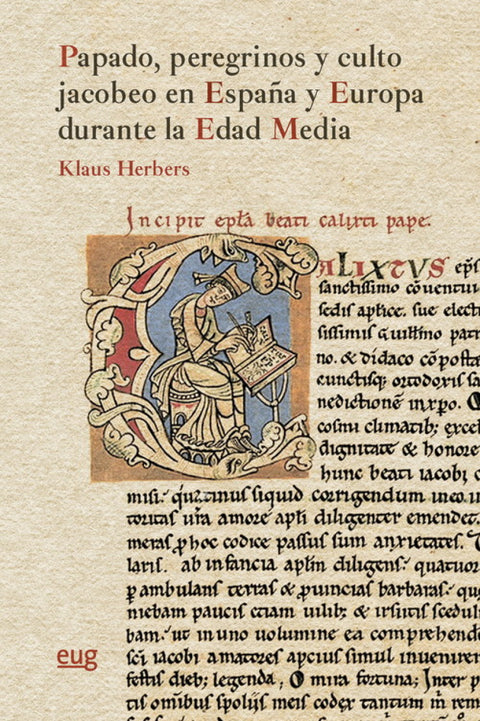 Papado, peregrinos y culto
jacobeo en España y Europa
durante la Edad Media
Klaus Herbers
Incipit epła beati calixti pape.
ALIXTVS ep̃s
sanctissimo cõventui
sedis aplice. sue electi
no. & didaco cõposte
cunctisq; ortodoxis sa
nedictionẽ inxp̃o.
cosmi climatib; excel
dignitate & honore
hunc beati iacobi c
misi. quatinus siquid corrigendum in eo in
toritas vr̃a amore apłi diligenter emendet.
meras p hoc codice passus sum anxietates.
laris. ab infancia apłm diligens. quatuor
p ambulans terras & puincias barbaras.
niebam paucis etiam uilib; & irsutis scedul
bam. ut in uno uolumine ea comprehende
sc̃i iacobi amatores apcius simul inuenirent
festis dieb; legenda. O mira fortuna; Inter p
tis omĩbus spolijs meis codex tantum m̃ rem
eug